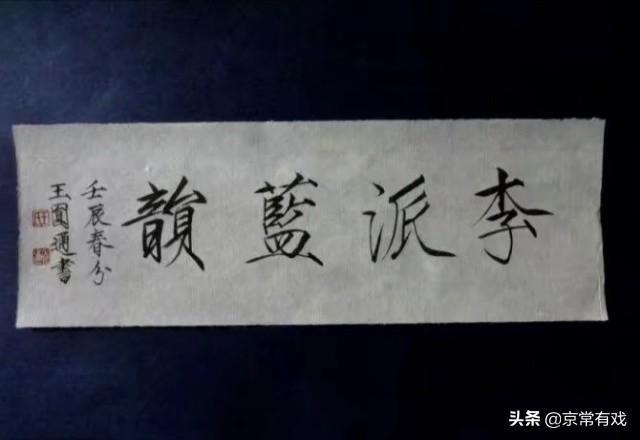 李派藍韻
壬辰春分
王圓通書
头条 @京常有戏